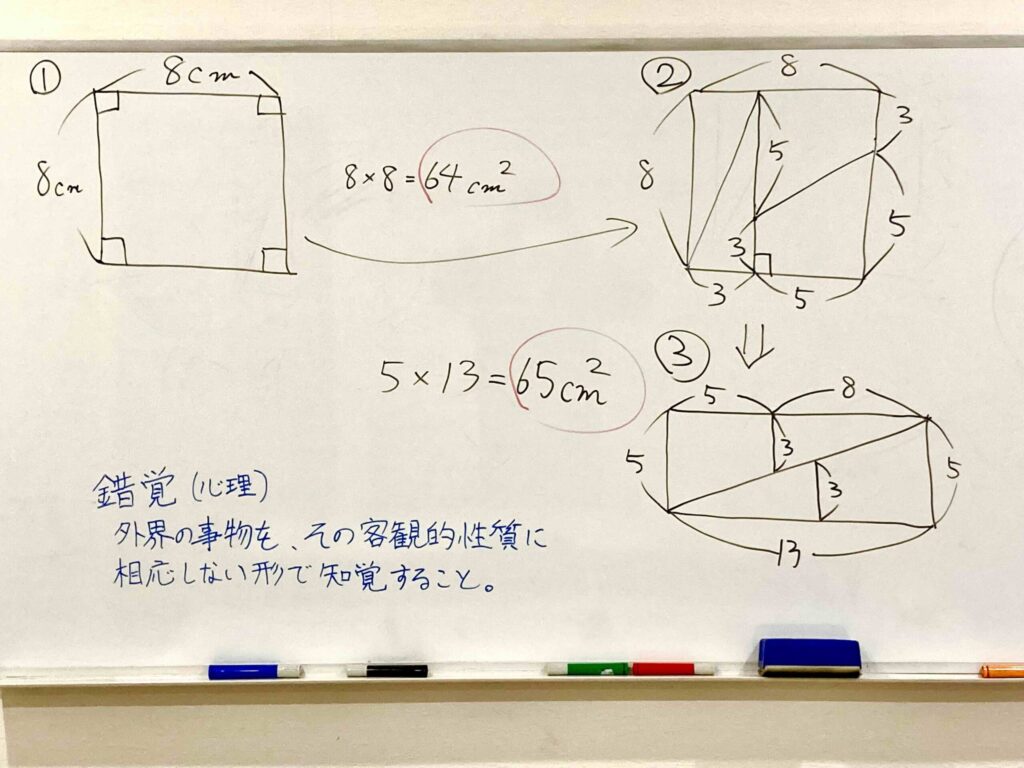 ① 8cm
8cm
8×8=64cm²
② 8
8
5
3
3
5
3
5
5×13=65cm²
③
5 8
5
3
3
5
13
錯覚(心理)
外界の事物を、その客観的性質に
相応しない形で知覚すること。